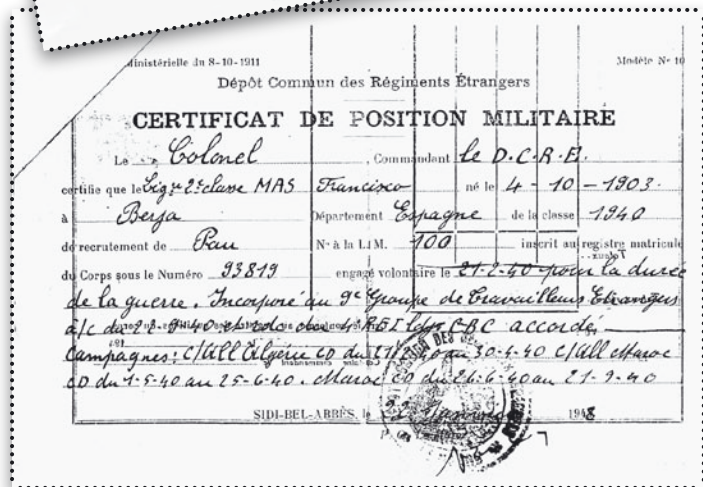 Ministérielle du 8-10-1911 Modèle N° 10
Dépôt Commun des Régiments Étrangers
CERTIFICAT DE POSITION MILITAIRE
Le Colonel, Commandant le D.C.R.E.
certifie que le Légre 2e classe MAS Francisco né le 4-10-1903.
à Berja Département Espagne de la classe 1940
de recrutement de Pau N° à la L.M. 100 inscrit au registre matricule
du Corps sous le Numéro 93819 engagé volontaire le 21-2-40 pour la durée
de la guerre. Incorporé au 9e Groupe de Travailleurs Etrangers
à/c du 22-9-40 et rds du 4° REI ldt CBC accordé
Campagnes: C/All Algérie CD du 21/2/40 au 30-4-40 C/All Maroc
CD du 1-5-40 au 25-6-40. Maroc CD du 26-6-40 au 21-9-40
SIDI-BEL-ABBÈS, le 22 Janvier 1948